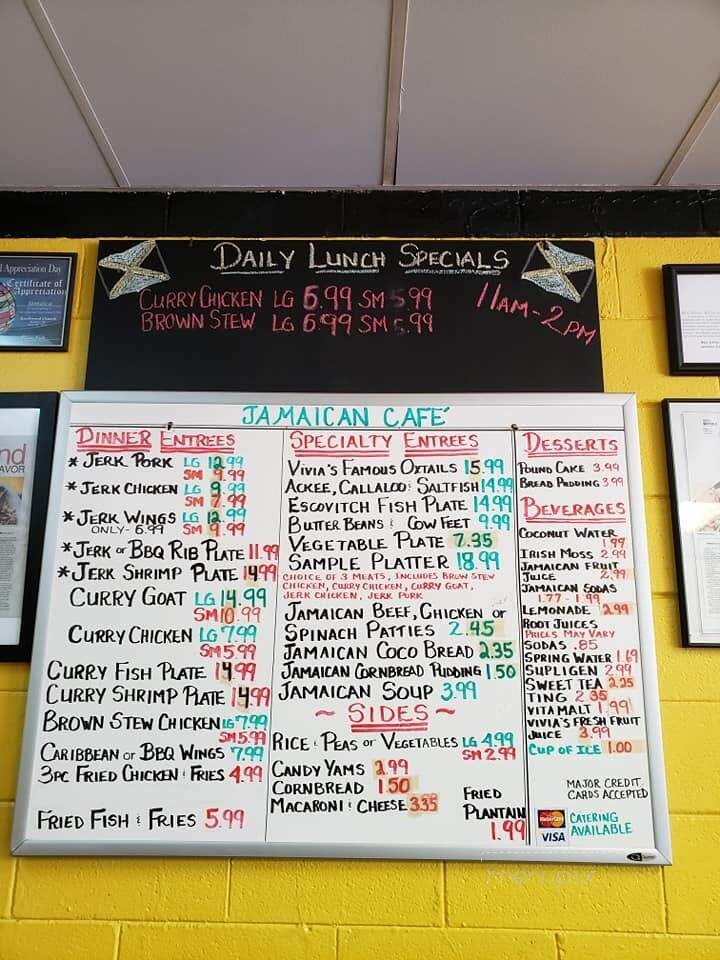 Appreciation Day
Certificate of
Appreciation
DAILY LUNCH SPECIALS
CURRY CHICKEN LG 6.99 SM 5.99
BROWN STEW LG 6.99 SM 5.99
11AM-2PM
JAMAICAN CAFÉ
DINNER ENTREES
* JERK PORK LG 12.99
SM 9.99
* JERK CHICKEN LG 9.99
SM 7.99
* JERK WINGS LG 12.99
ONLY- 6.99 SM 9.99
* JERK or BBQ RIB PLATE 11.99
* JERK SHRIMP PLATE 14.99
CURRY GOAT LG 14.99
SM 10.99
CURRY CHICKEN LG 7.99
SM 5.99
CURRY FISH PLATE 14.99
CURRY SHRIMP PLATE 14.99
BROWN STEW CHICKEN LG 7.99
SM 5.99
CARIBBEAN or BBQ WINGS 7.99
3PC FRIED CHICKEN & FRIES 4.99
FRIED FISH & FRIES 5.99
SPECIALTY ENTREES
VIVIA'S FAMOUS OXTAILS 15.99
ACKEE, CALLALOO & SALTFISH 14.99
ESCOVITCH FISH PLATE 14.99
BUTTER BEANS & COW FEET 9.99
VEGETABLE PLATE 7.35
SAMPLE PLATTER 18.99
CHOICE OF 3 MEATS, INCLUDES BROWN STEW
CHICKEN, CURRY CHICKEN, CURRY GOAT,
JERK CHICKEN, JERK PORK
JAMAICAN BEEF, CHICKEN or
SPINACH PATTIES 2.45
JAMAICAN COCO BREAD 2.35
JAMAICAN CORNBREAD PUDDING 1.50
JAMAICAN SOUP 3.99
~ SIDES ~
RICE & PEAS or VEGETABLES LG 4.99
SM 2.99
CANDY YAMS 2.99
CORNBREAD 1.50
MACARONI & CHEESE 3.35
FRIED
PLANTAIN
1.99
DESSERTS
POUND CAKE 3.99
BREAD PUDDING 3.99
BEVERAGES
COCONUT WATER
1.99
IRISH MOSS 2.99
JAMAICAN FRUIT
JUICE 2.99
JAMAICAN SODAS
1.77 - 1.99
LEMONADE 2.99
ROOT JUICES
PRICES MAY VARY
SODAS .85
SPRING WATER 1.69
SUPLIGEN 2.99
SWEET TEA 2.25
TING 2.35
VITAMALT 1.99
VIVIA'S FRESH FRUIT
JUICE 3.99
CUP OF ICE 1.00
MAJOR CREDIT
CARDS ACCEPTED
MasterCard
VISA
CATERING
AVAILABLE